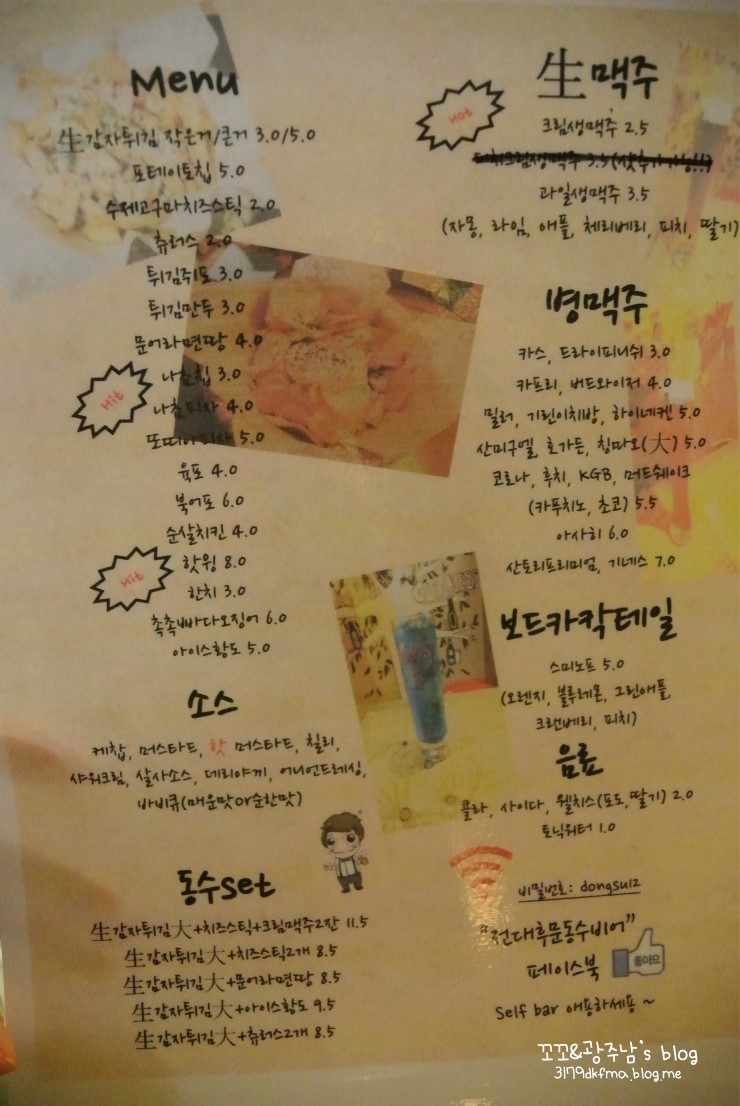 Menu
生감자튀김 작은거/큰거 3.0/5.0
포테이토칩 5.0
수제고구마치즈스틱 2.0
츄러스 2.0
튀김쥐포 3.0
튀김만두 3.0
문어라면땅 4.0
나쵸칩 3.0
Hit
나쵸피자 4.0
또띠아피자 5.0
육포 4.0
북어포 6.0
순살치킨 4.0
핫윙 8.0
Hit
한치 3.0
촉촉빠다오징어 6.0
아이스황도 5.0
소스
케찹, 머스타드, 핫 머스타드, 칠리,
샤워크림, 살사소스, 데리야끼, 어니언드레싱,
바비큐(매운맛or순한맛)
동수set
生감자튀김大+치즈스틱+크림맥주2잔 11.5
生감자튀김大+치즈스틱2개 8.5
生감자튀김大+문어라면땅 8.5
生감자튀김大+아이스황도 9.5
生감자튀김大+츄러스2개 8.5
生맥주
Hot
크림생맥주 2.5
크림생맥주 3.5
과일생맥주 3.5
(자몽, 라임, 애플, 체리베리, 피치, 딸기)
병맥주
카스, 드라이피니쉬 3.0
카프리, 버드와이저 4.0
밀러, 기린이치방, 하이네켄 5.0
산미구엘, 호가든, 칭따오(大) 5.0
코로나, 후치, KGB, 머드쉐이크
(카푸치노, 초코) 5.5
아사히 6.0
산토리프리미엄, 기네스 7.0
보드카칵테일
스미노프 5.0
(오렌지, 블루레몬, 그린애플,
크랜베리, 피치)
음료
콜라, 사이다, 웰치스(포도,딸기) 2.0
토닉워터 1.0
비밀번호: dongsu12
"전대후문동수비어"
페이스북
좋아요
Self bar 애용하세용 ~
꼬꼬&광주남's blog
3179dkfma.blog.me